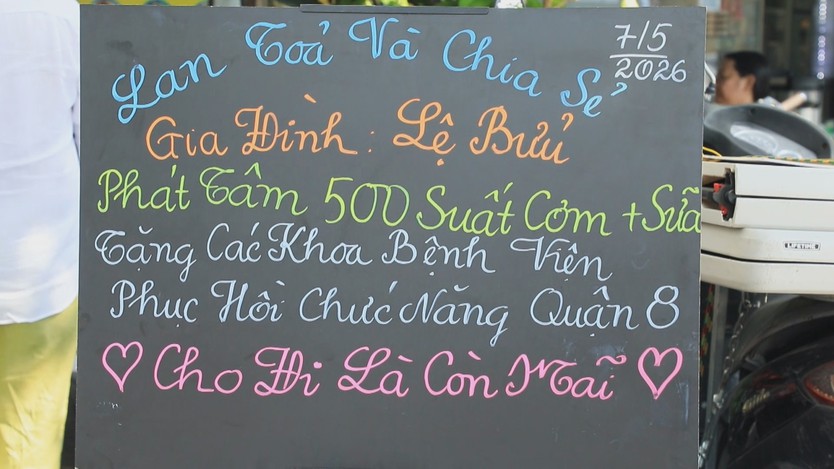 Lan Toả Và Chia Sẻ
7/5
2026
Gia Đình: Lệ Bửu
Phát Tâm 500 Suất Cơm + Sữa
Tặng Các Khoa Bệnh Viện
Phục Hồi Chức Năng Quận 8
♡ Cho Đi Là Còn Mãi ♡
LIFETIME